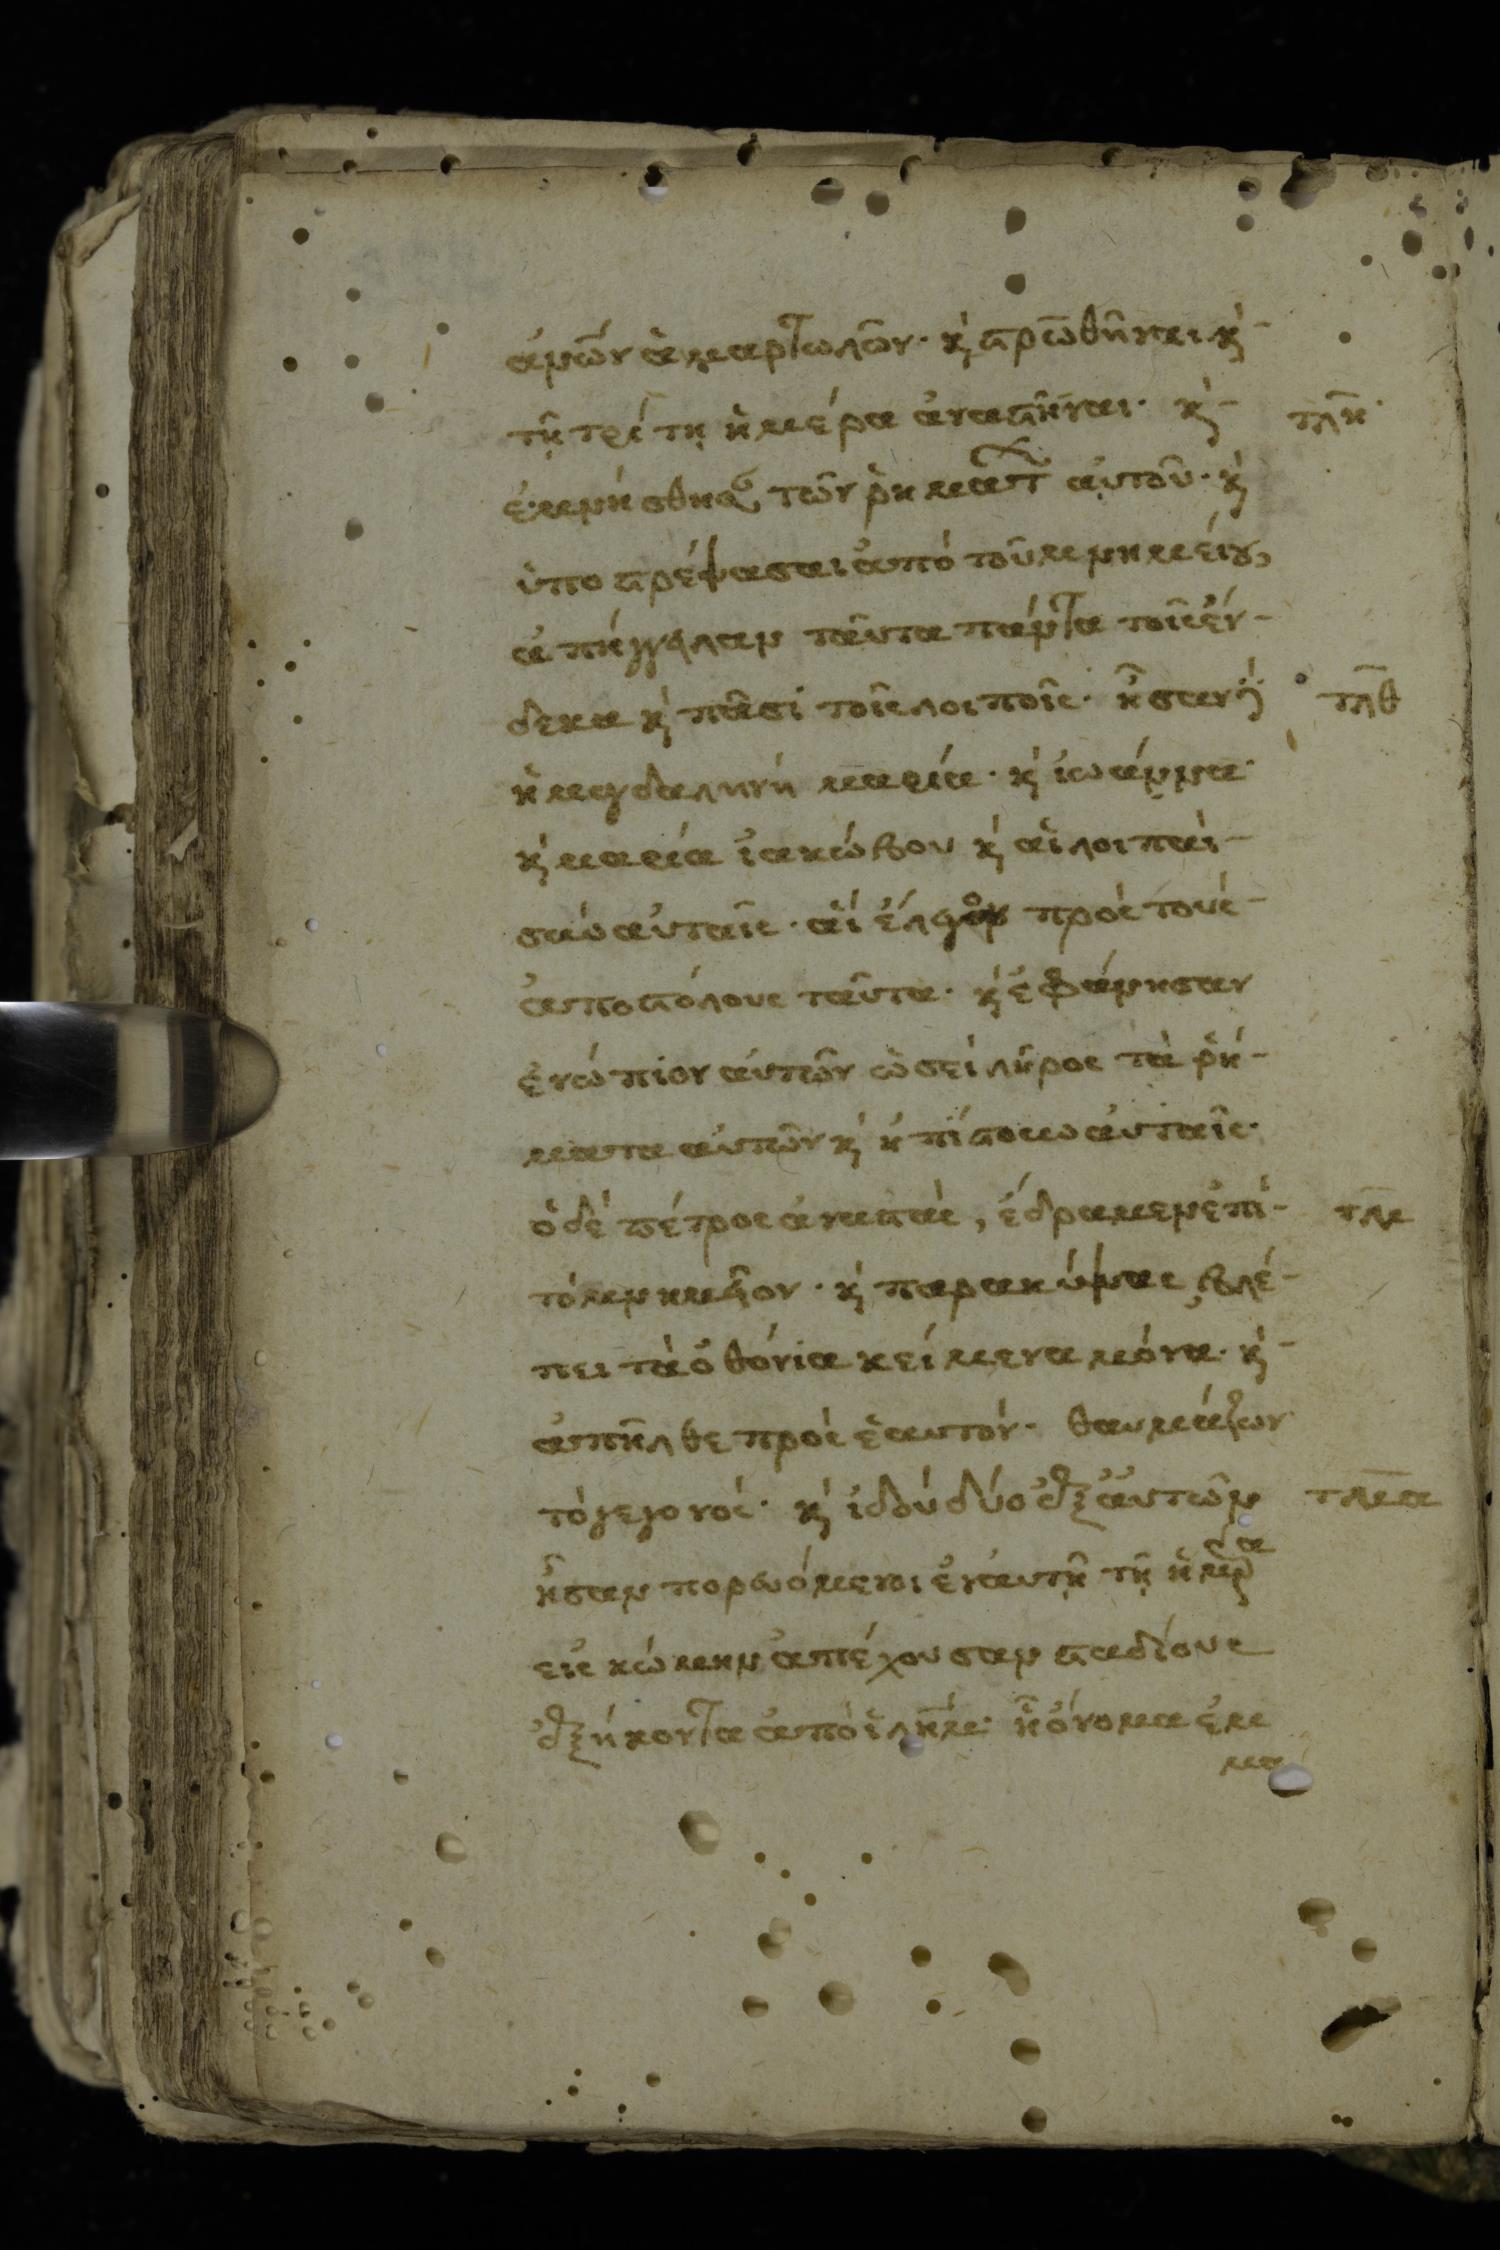 ἀνων ἁμαρτωλῶν· κ̀ στρωθῆναι κ̀
τῇ τρίτῃ ἡμέρα ἀναστῆναι· κ̀ τλη
ἐμνήσθησ τῶν ῥημάτ αὐτοῦ· κ̀
ὑποστρέψασαι ἀπὸ τοῦ μνημείου,
ἀπήγγειλαν ταῦτα πάντα τοῖς ἕν-
δεκα κ̀ πᾶσι τοῖς λοιποῖς· ἦσαν δὲ τλθ
ἡ μαγδαληνή μαρία· κ̀ ἰωάννα·
κ̀ μαρία ἰακώβου κ̀ αἱ λοιπαὶ
σὺν αὐταῖς· αἳ ἔλεγον πρὸς τοὺς
ἀποστόλους ταῦτα· κ̀ ἐφάνησαν
ἐνώπιον αὐτῶν ὡσεὶ λῆρος τὰ ῥή-
ματα αὐτῶν κ̀ ἠπίστουν αὐταῖς·
ὁ δὲ πέτρος ἀναστὰς, ἔδραμεν ἐπὶ τλμ
τὸ μνημεῖον· κ̀ παρακύψας βλέ-
πει τὰ ὀθόνια κείμενα μόνα· κ̀
ἀπῆλθε πρὸς ἑαυτόν· θαυμάζων
τὸ γεγονός· κ̀ ἰδοὺ δύο ἐξ αὐτῶν τλμα
ἦσαν πορευόμενοι ἐν αὐτῇ τῇ ἡμέρα
εἰς κώμην ἀπέχουσαν σταδίους
ἑξήκοντα ἀπὸ ἱλήμ· ἧ ὄνομα ἐμ
μα